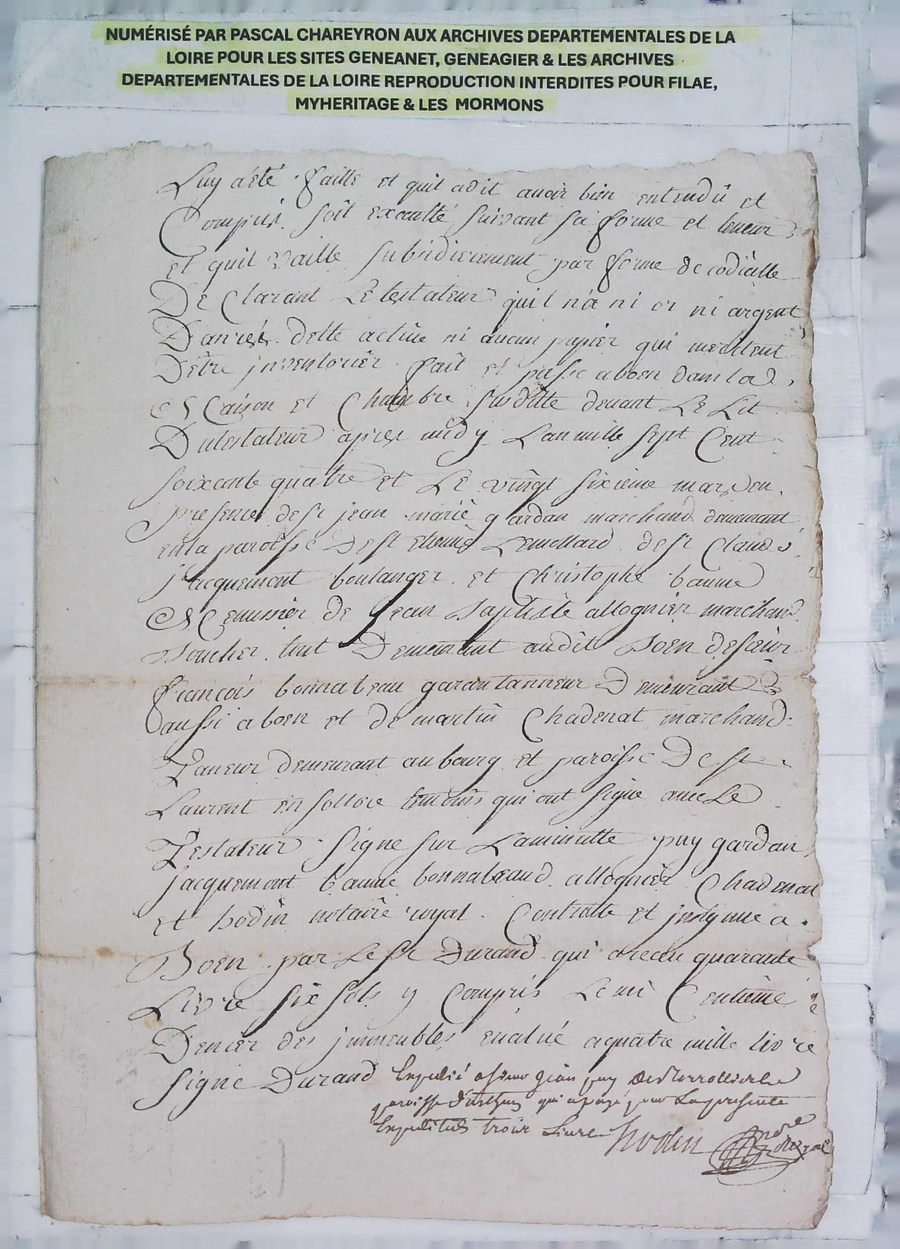 NUMÉRISÉ PAR PASCAL CHAREYRON AUX ARCHIVES DEPARTEMENTALES DE LA
LOIRE POUR LES SITES GENEANET, GENEAGIER & LES ARCHIVES
DEPARTEMENTALES DE LA LOIRE REPRODUCTION INTERDITES POUR FILAE,
MYHERITAGE & LES MORMONS
Luy a été faitte et quil adit avoir bien entendû et
Compris. soit executté suivant sa forme et teneur
Et quil vaille subsidierement par forme de codicille
De Clarant Le testateur quil n'a ni or ni argent
Danrés dette active ni aucun papier qui meritent
D'être jnventorier fait et passé a boen dans lad
Maison et Chambre susditte devant Le Lit
Du testateur apres midy Lan mille sept Cent
soixante quatre et Le vingt sixieme mars en
presence de sr jean marie gardan marchand demeurant
en la paroisse De st Etienne Lemollard de sr Claude
jacquemont boulanger et Christophe baume
Menuisier de Jean Baptiste allognier marchand
Boucher tout Demeurant audit Boen de sieur
francois bonnabeau garan tanneur Demeurant
aussi a boen et de martin Chadenat marchand
Taneur demeurant au bourg et paroisse De st
Laurent en sollore temoins qui ont signe avec Le
Testateur signe sur La minutte puy gardan
jacquemont baume bonnabeaud allognier Chadenat
et hodin notaire royal. Controlle et jnsinue a
Boen par Le sr Durand qui a recu quarante
Livre six sols y Compris Le mi Centieme
Denier des jmmeubles evalué a quatre mille livre
signe Durand Expedié a sieur Jean puy
paroisse qui a payé pour La presente
Expedition trois Livre hodin
Nore Royal